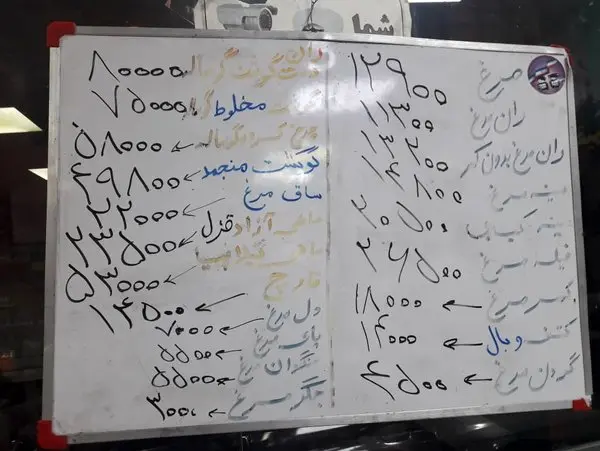 شما
مرغ ۱۲۹۰۰
ران مرغ ۱۱۳۰۰
ران مرغ بدون کمر ۱۳۲۰۰
سینه مرغ ۱۴۸۰۰
سینه کبابی ۲۰۵۰۰
فیله مرغ ۲۶۵۰۰
کمر مرغ ← ۱۸۰۰۰
کتف و بال ← ۱۴۰۰۰
گردن مرغ ← ۴۵۰۰
ران
گوشت گوساله ۸۰۰۰۰
مخلوط ۷۵۰۰۰
چرخ کرده گوساله ← ۵۸۰۰۰
گوشت منجمد ← ۴۹۸۰۰
ساق مرغ ←
ماهی آزاد قزل ←
ماهی تیلاپیا ←
قارچ
دل مرغ ← ۱۴۵۰۰
پای مرغ ← ۷۰۰۰
سنگدان مرغ ← ۵۵۰۰
← ۵۵۰۰
جگر مرغ ← ۳۰۰۰